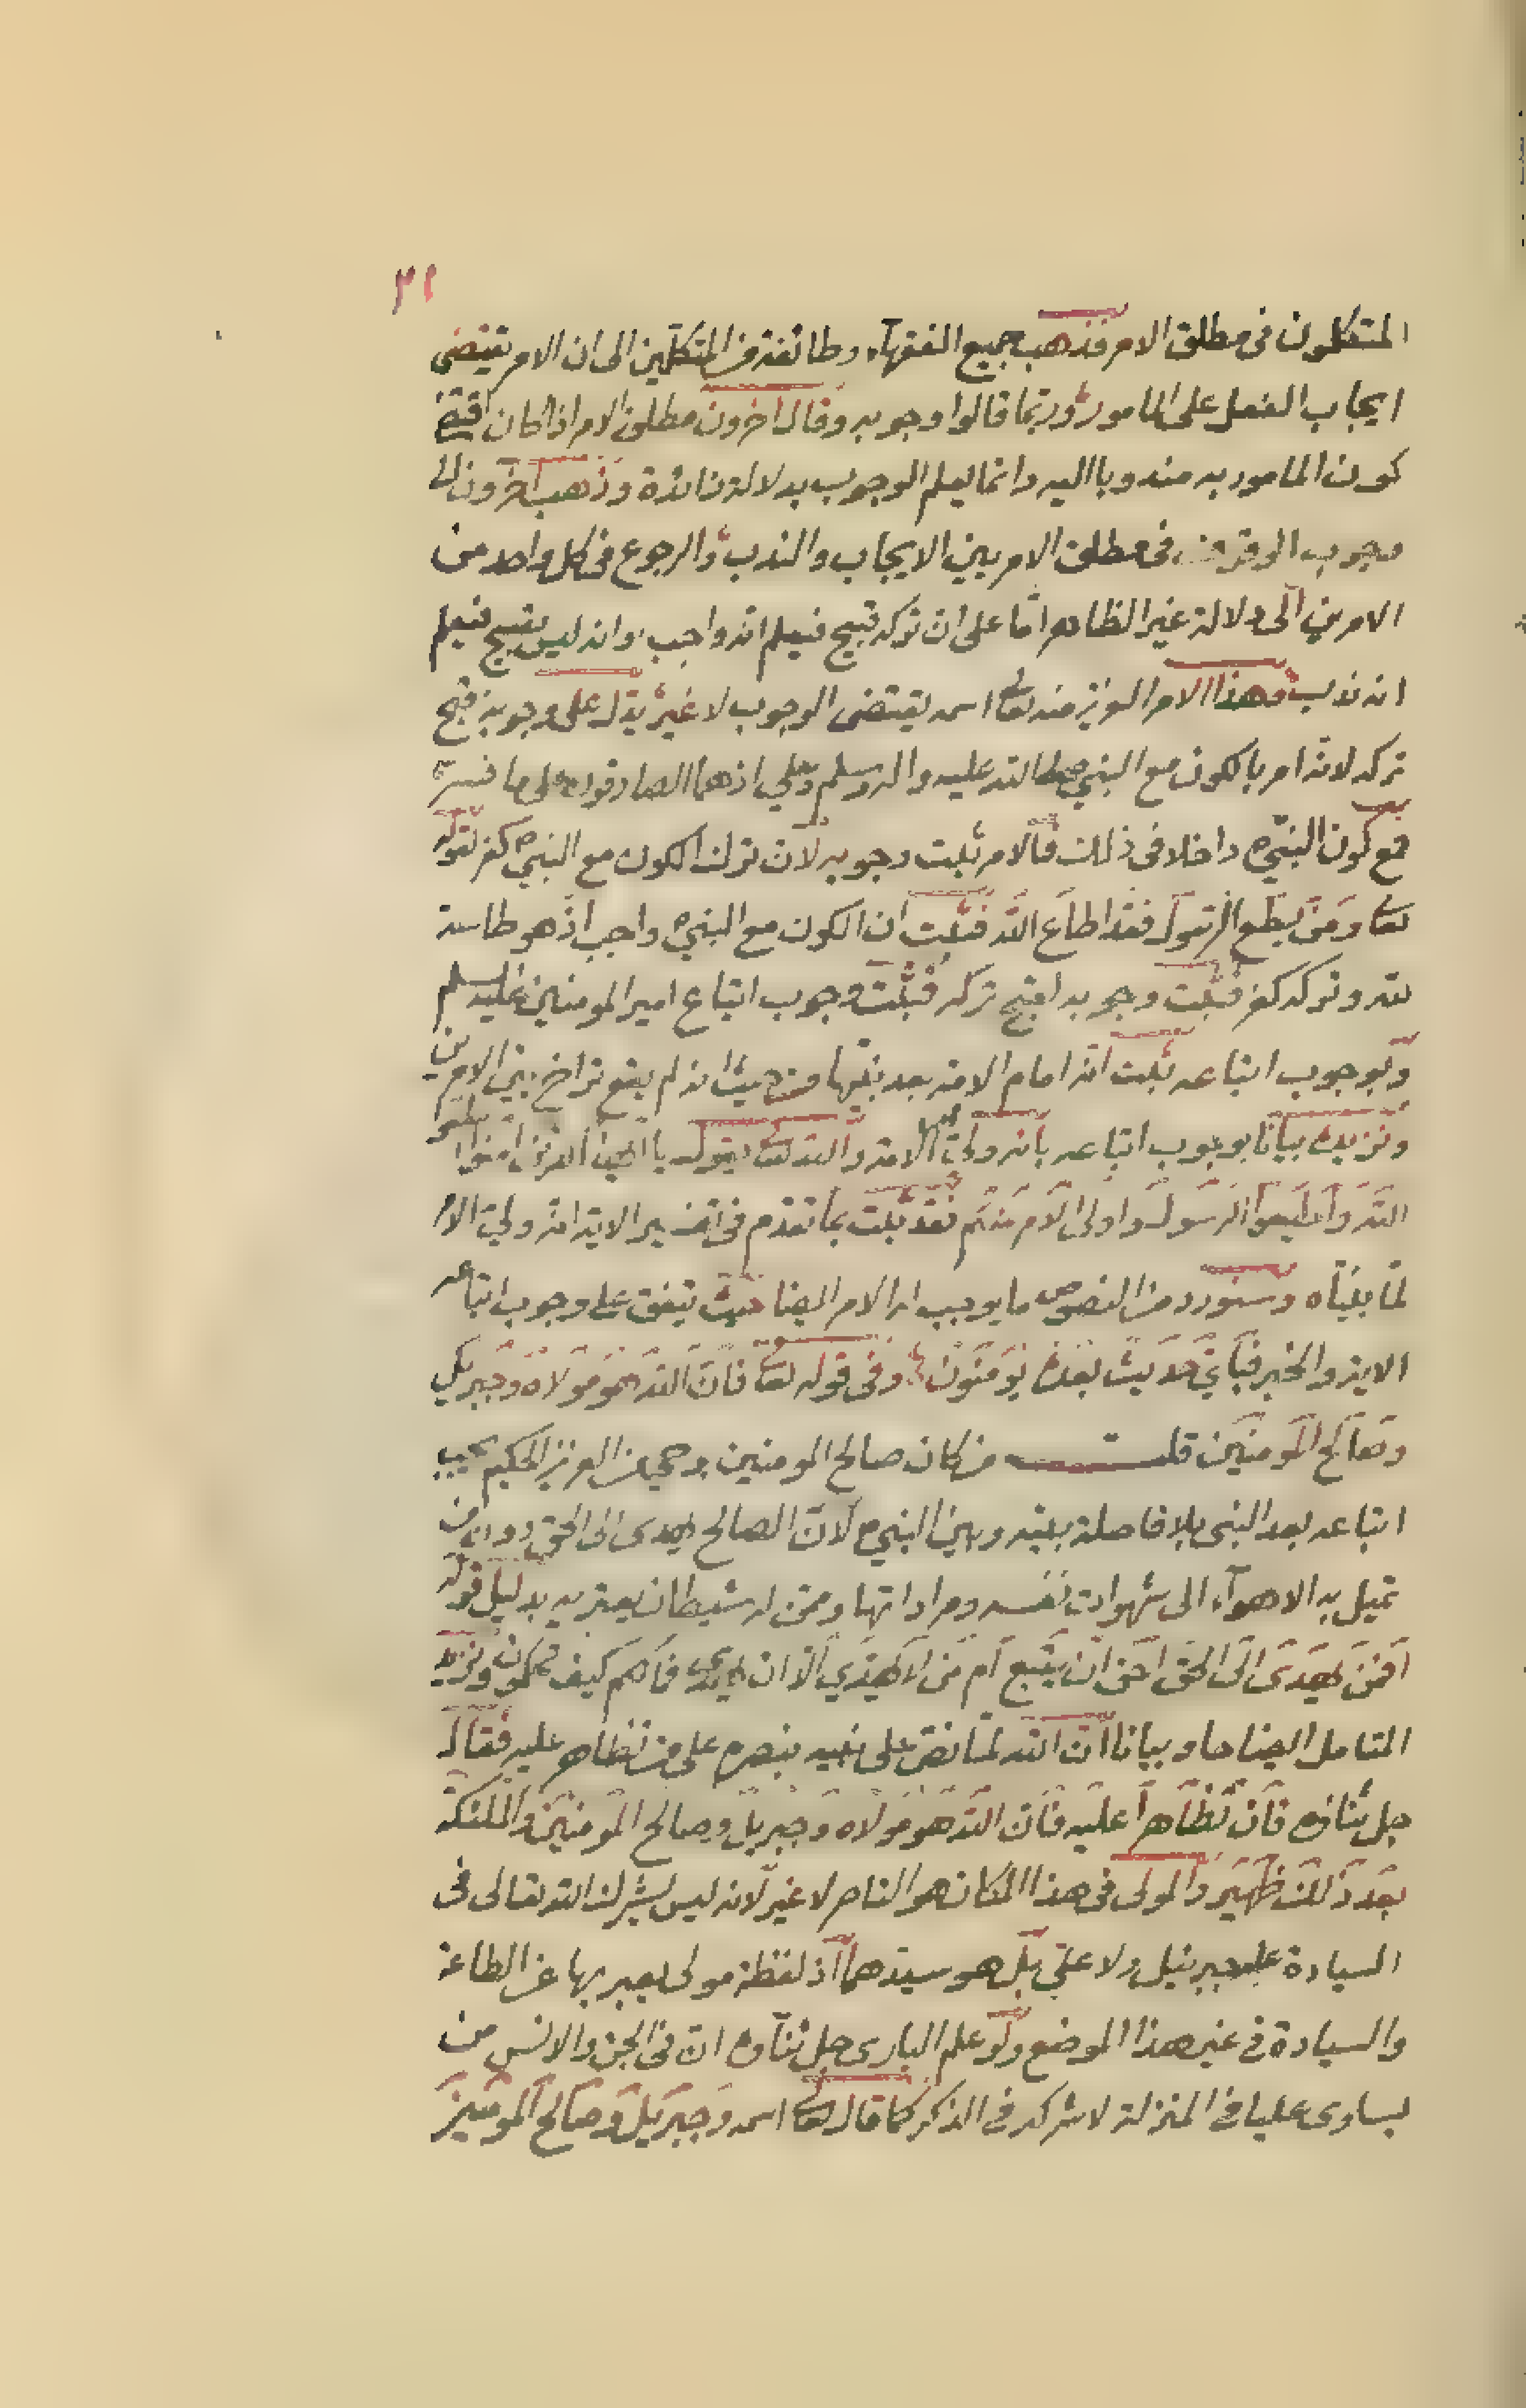 ٣١
المتكلمون فى مطلق الامر فذهب جميع الفقهآء وطائفة من المتكلمين الى ان الامر يقتضى
ايجاب الفعل على المامور وربما قالوا وجوبه وقال اخرون مطلق الامر اذا كان اقتضى
كون المامور به مندوبا اليه وانما يعلم الوجوب بدلالة زائدة وذهب اخرون الى
وجوب الوقوف فى مطلق الامر بين الايجاب والندب والرجوع فى كل واحد من
الامرين الى دلالة غير الظاهر اما على ان تركه قبيح فيعلم انه واجب وانه ليس بقبيح فيعلم
انه ندب وهذا الامر العزيز منه تعالى اسمه يقتضى الوجوب لا غير يدل على وجوبه قبح
تركه لانه امر بالكون مع النبي صلى الله عليه واله وسلم وعلي اذ هما الصادقون على ما فسر
مع كون النبي داخلا فى ذلك فالامر ثبت وجوبه لان ترك الكون مع النبي كفر لقوله
تعا ومن يطع الرسول فقد اطاع الله فثبت ان الكون مع النبي واجب اذ هو طاعة
لله وتركه كفر فثبت وجوبه لقبح تركه فثبت وجوب اتباع امير المومنين عليه السلم
وبوجوب اتباعه ثبت انه امام الامة بعد نبيها من حيث انه لم يقع تراخ بين الامرين
ونزيده بيانا بوجوب اتباعه بانه ولي الامة والله تعا يقول يا ايها الذين امنوا اطيعوا
الله واطيعوا الرسول واولى الامر منكم فقد ثبت بما تقدم فى تفسير الاية انه ولي الامر
لما بيناه وسنورد من النصوص ما يوجب له الامر ايضا حيث يتفق على وجوب اتباعه
الاية والخبر فباي حديث بعده يومنون وفى قوله تعا فان الله هو مولاه وجبريل
وصالح المومنين قلت من كان صالح المومنين بوحي من العزيز الحكيم يجب
اتباعه بعد النبى بلا فاصلة بينه وبين النبي لان الصالح يهدى الى الحق دون من
تميل به الاهوآء الى شهوات نفسه ومراداتها ومن له شيطان يعتريه بدليل قوله
افمن يهدى الى الحق احق ان يتبع ام من لا يهدي الا ان يهدى فما لكم كيف تحكمون ونزيد
المتامل ايضاحا وبيانا ان الله لما نص على نبيه بنصره على من تظاهر عليه فقال
جل ثناؤه فان تظاهرا عليه فان الله هو مولاه وجبريل وصالح المومنين والملئكة
بعد ذلك ظهير والمولى فى هذا المكان هو الناصر لا غير لانه ليس يشرك الله تعالى فى
السيادة على جبرئيل ولا علي بل هو سيدهما اذ لفظة مولى يعبر بها عن الطاعة
والسيادة فى غير هذا الموضع ولو علم البارى جل ثناؤه ان فى الجن والانس من
يساوى عليا فى المنزلة لاشركه فى الذكر كما قال تعا اسمه وجبريل وصالح المومنين